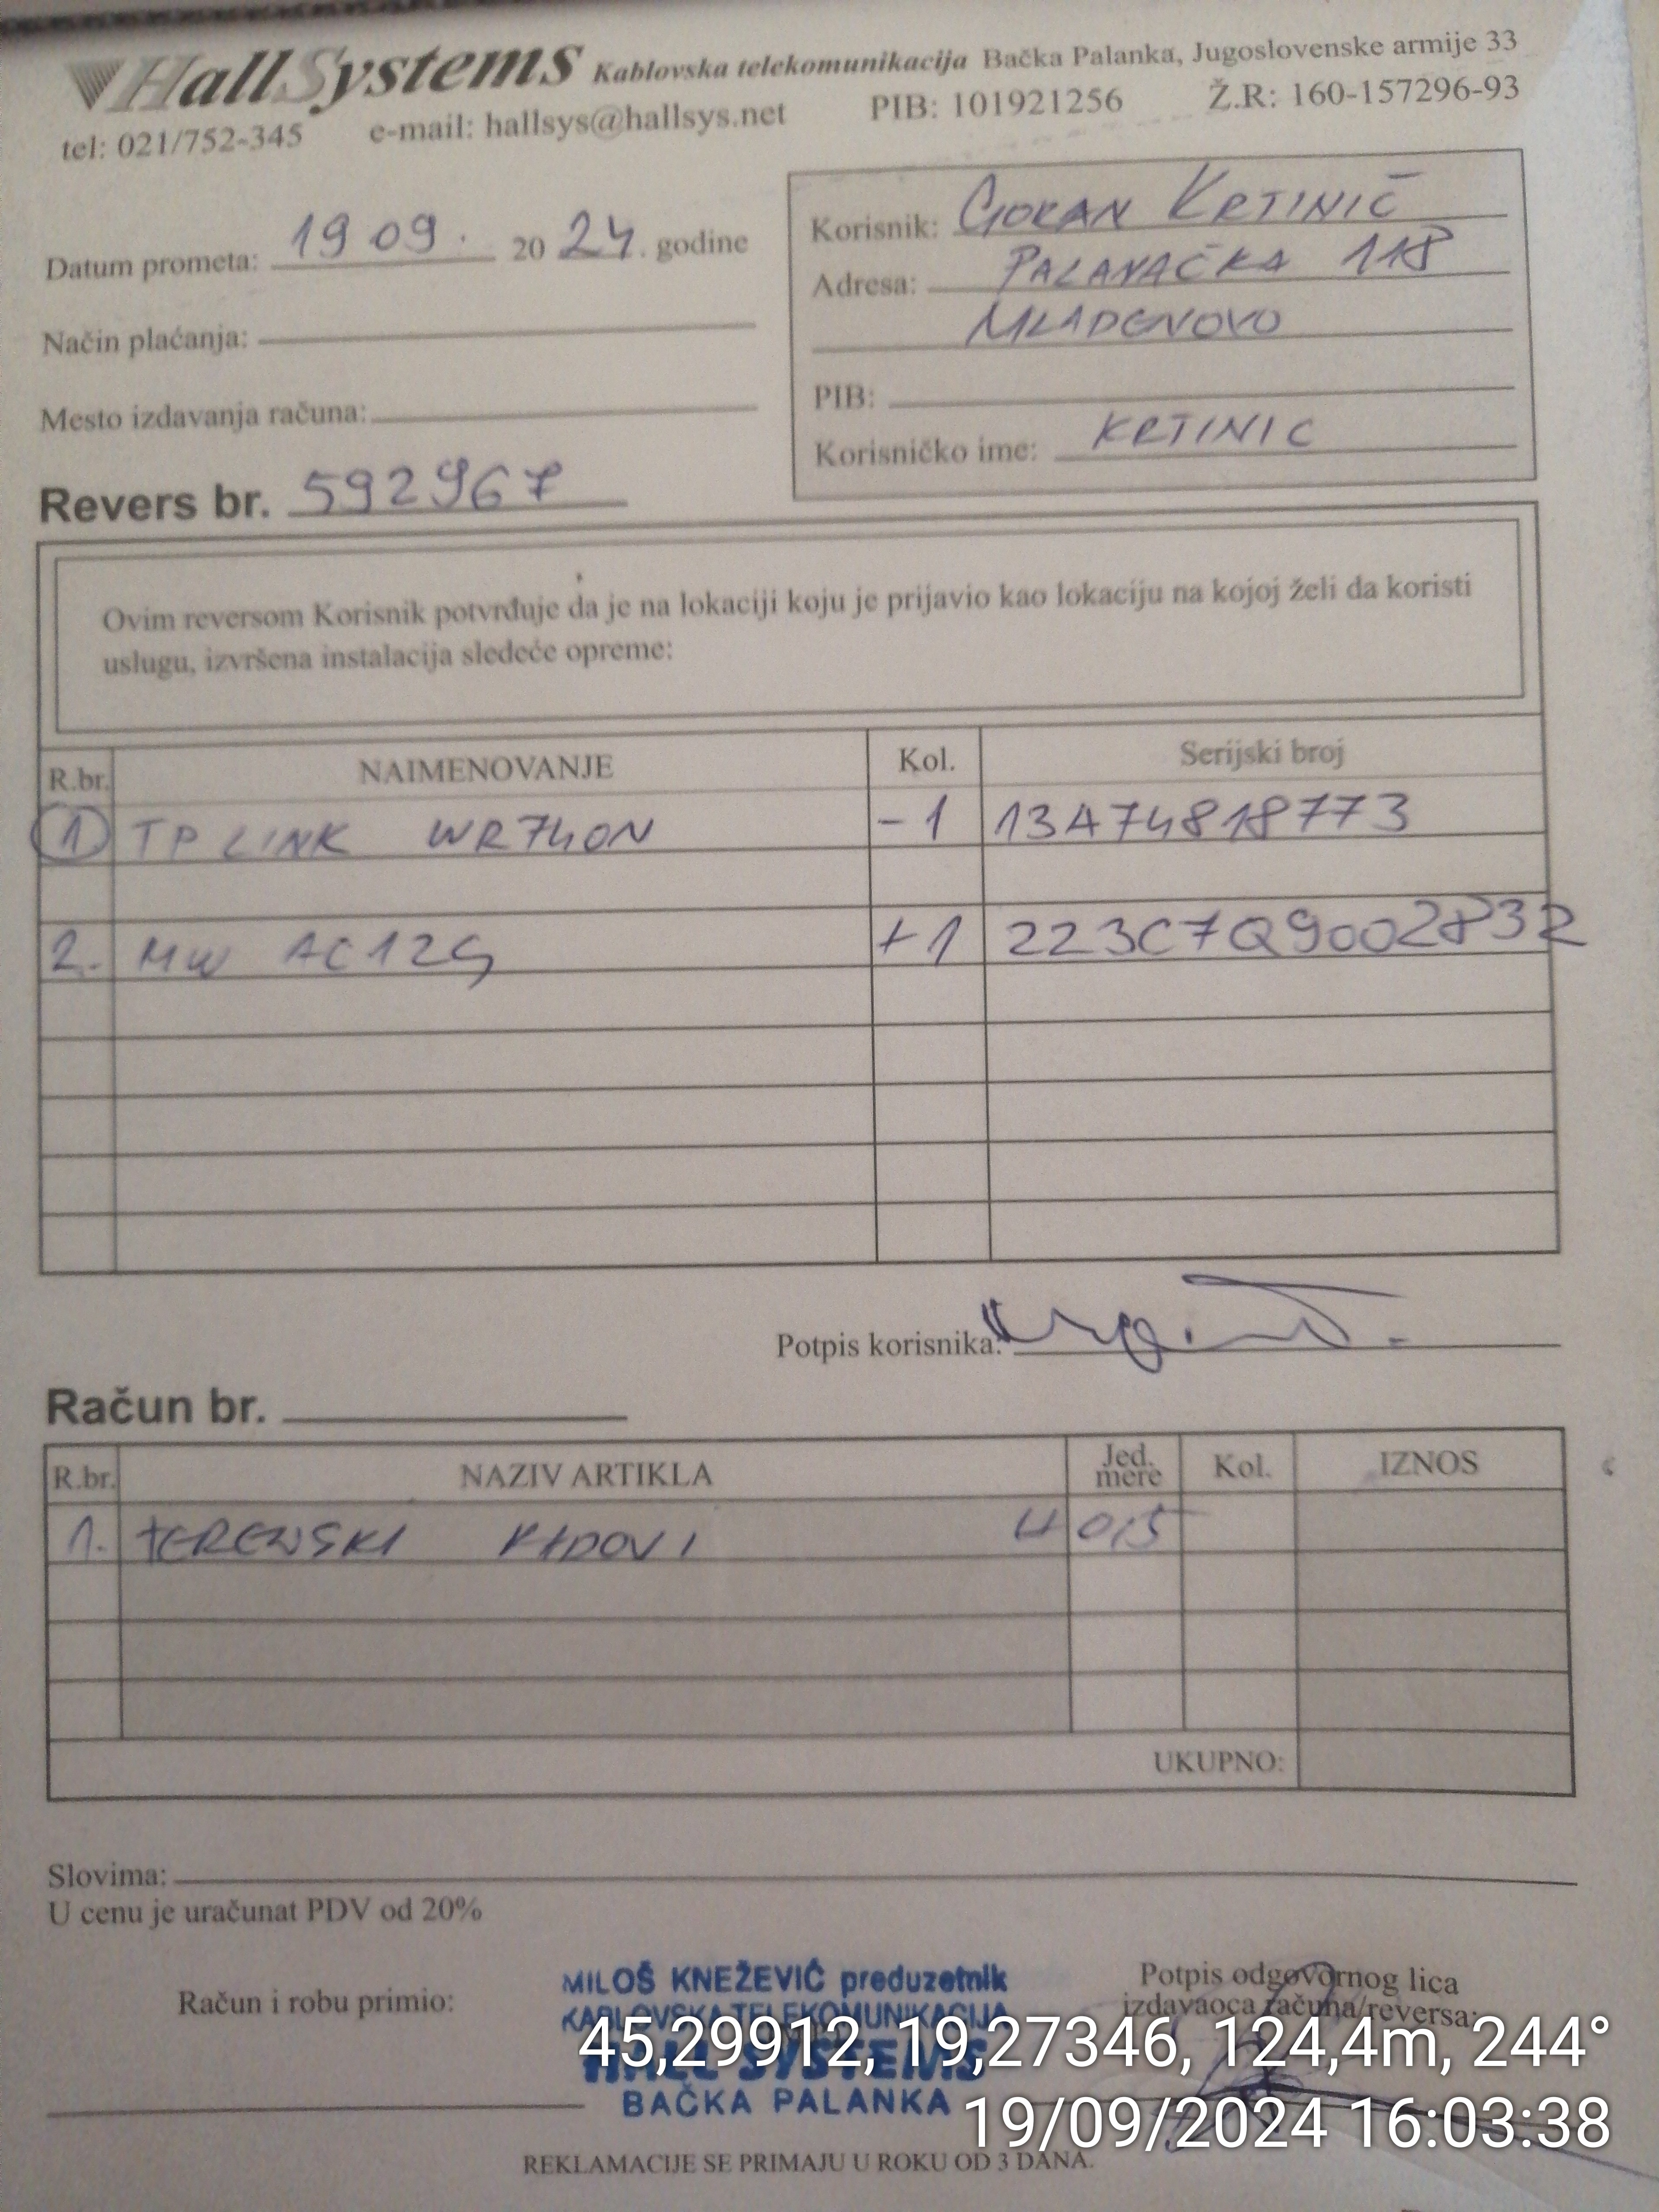 HallSystems Kablovska telekomunikacija Bačka Palanka, Jugoslovenske armije 33
tel: 021/752-345 e-mail: hallsys@hallsys.net PIB: 101921256 Ž.R: 160-157296-93
Datum prometa: 19 09. 20 24. godine
Način plaćanja:
Mesto izdavanja računa:
Korisnik: GORAN KRTINIĆ
Adresa: PALANAČKA 118
MLADENOVO
PIB:
Korisničko ime: KRTINIC
Revers br. 592967
Ovim reversom Korisnik potvrđuje da je na lokaciji koju je prijavio kao lokaciju na kojoj želi da koristi
uslugu, izvršena instalacija sledeće opreme:
R.br. NAIMENOVANJE Kol. Serijski broj
1 TP LINK WR740N -1 13A74818773
2. MW AC12G +1 223C7Q9002832
Potpis korisnika:
Račun br.
R.br. NAZIV ARTIKLA Jed. mere Kol. IZNOS
1. TERENSKI RADOVI 4 0,5
UKUPNO:
Slovima:
U cenu je uračunat PDV od 20%
Račun i robu primio:
MILOŠ KNEŽEVIĆ preduzetnik
KABLOVSKA TELEKOMUNIKACIJA
HALL SYSTEMS
BAČKA PALANKA
Potpis odgovornog lica
izdavaoca računa/reversa:
45,29912, 19,27346, 124,4m, 244°
19/09/2024 16:03:38
REKLAMACIJE SE PRIMAJU U ROKU OD 3 DANA.